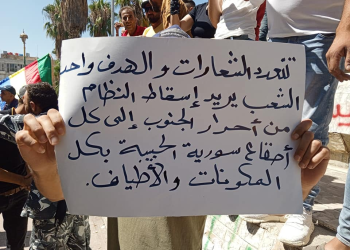 تتعدد الشعارات و الهدف واحد
الشعب يريد إسقاط النظام
من أحرار الجنوب إلى كل
أصقاع سورية الحبيبة بكل
المكونات والأطياف.